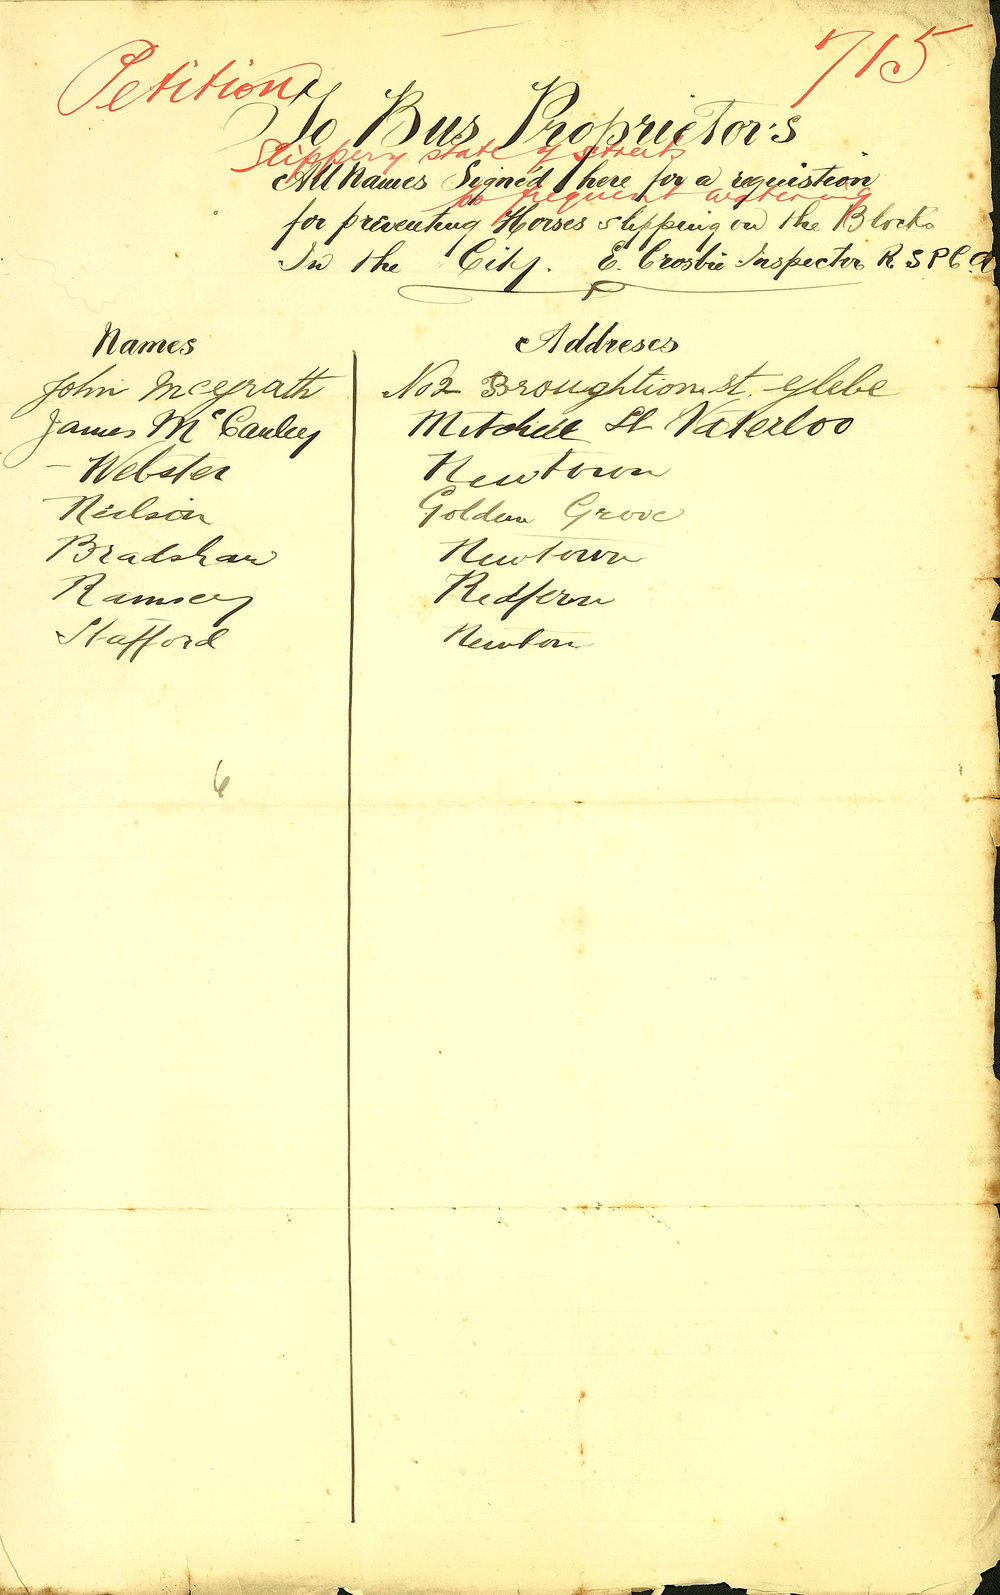 Petition
715
To Bus Proprietor's
Slippery state of streets
All Names Signed here for a requistion
to frequent watering
for preventing Horses slipping on the Blocks
In the City. E. Crosbie Inspector R. S P C A
Names Addreses
John Mcgrath No 2 Broughtion st. glebe
James McCauley Mitchell St Waterloo
- Webster Newtown
Neilson Golden Grove
Bradshaw Newtown
Ramsey Redfern
Stafford Newton
6